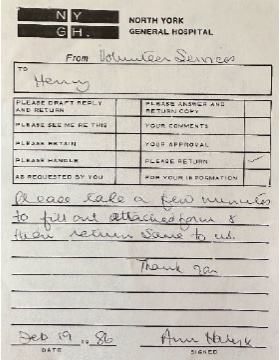 NY
GH.
NORTH YORK
GENERAL HOSPITAL
From Volunteer Services
TO
Henry
PLEASE DRAFT REPLY AND RETURN
PLEASE ANSWER AND RETURN COPY
PLEASE SEE ME RE THIS
YOUR COMMENTS
PLEASE RETAIN
YOUR APPROVAL
PLEASE HANDLE
PLEASE RETURN ✓
AS REQUESTED BY YOU
FOR YOUR INFORMATION
Please take a few minutes
to fill out attached form &
then return same to us.
Thank you
Feb 19, 1986
Ann
DATE
SIGNED